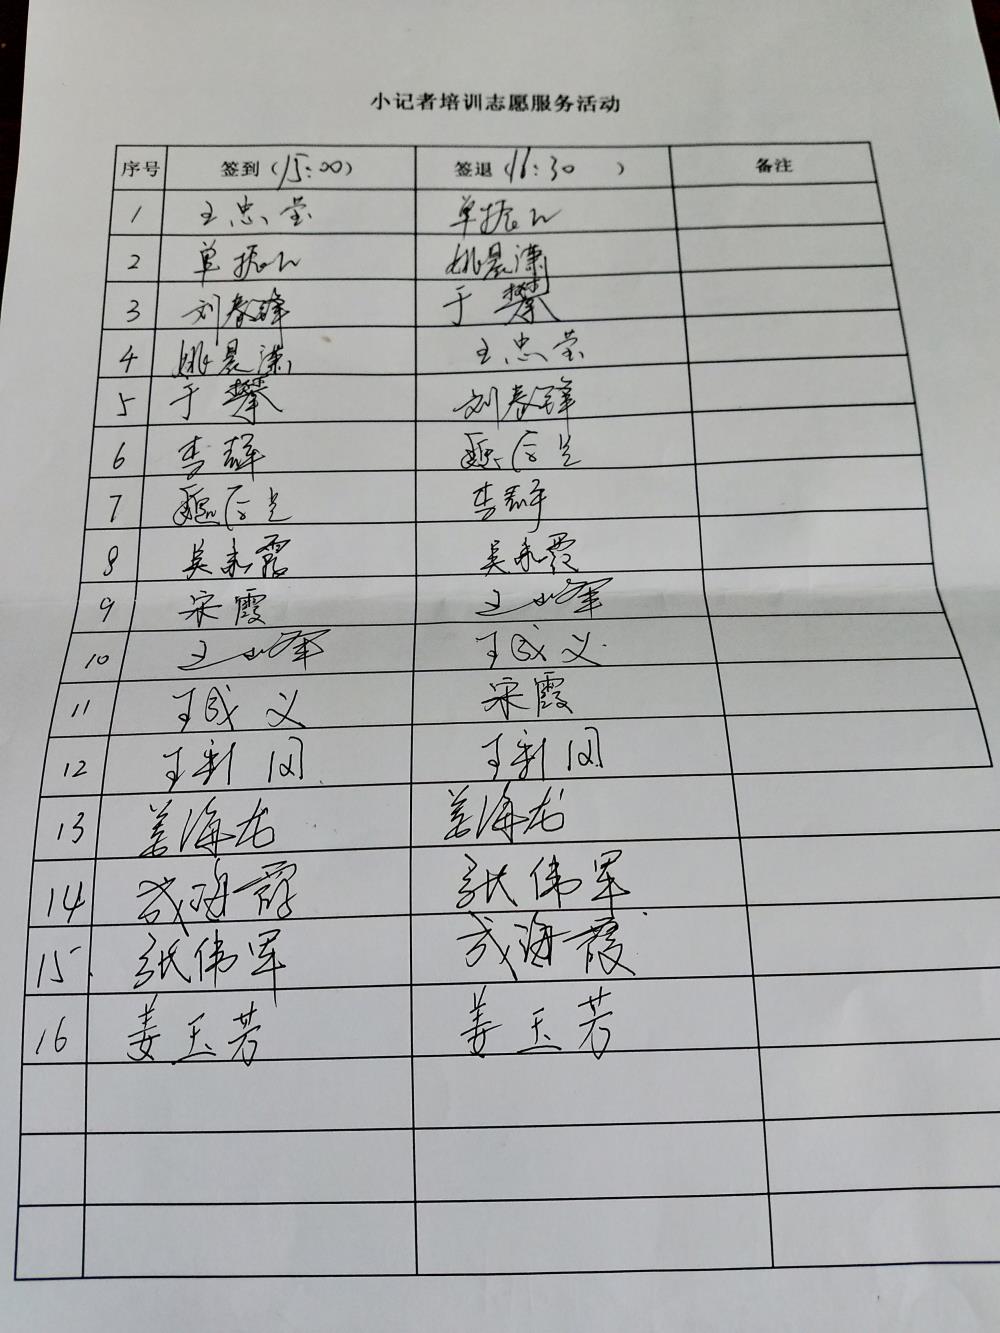 小记者培训志愿服务活动
序号 签到（15:00） 签退（16:30 ） 备注
1 王忠莹 单振
2 单振 姚晨潇
3 刘春锋 于攀
4 姚晨潇 王忠莹
5 于攀 刘春锋
6 李辉
7 李辉
8 吴永霞 吴永霞
9 宋霞 王山军
10 王山军 王成义
11 王成义 宋霞
12 王新国 王新国
13 姜海龙 姜海龙
14 成海霞 张伟军
15 张伟军 成海霞
16 姜玉芳 姜玉芳